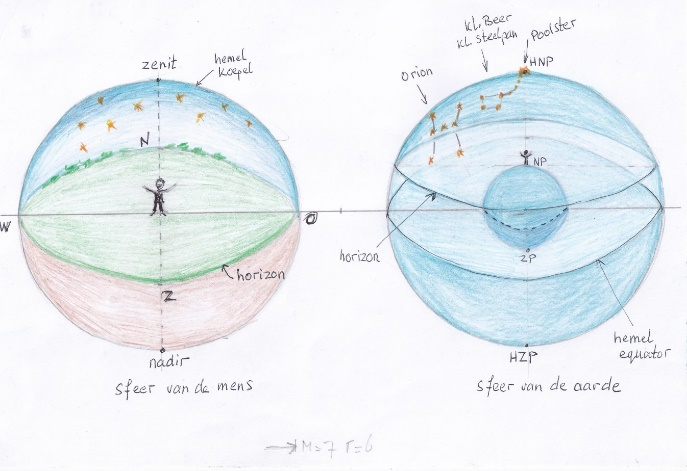 zenit
hemel
koepel
N
W
O
horizon
Z
nadir
sfeer van de mens
kl. Beer
kl. steelpan
Poolster
HNP
orion
NP
ZP
horizon
hemel
equator
HZP
sfeer van de aarde
M=7 r=6